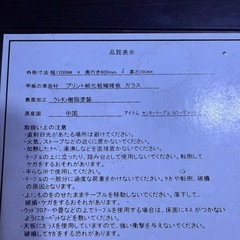 品質表示
外形寸法 幅1200mm × 奥行き600mm × 高さ390mm
甲板の表面材 プリント紙化粧繊維板 ガラス
表面加工 ウレタン樹脂塗装
原産国 中国 アイテム センターテーブル
取扱い上の注意
・直射日光があたる場所は避けてください。
・火気、ストーブなどの近くに置かないでください。
・加熱したナベ、湯沸しなどを直接置かないでください。
・テーブルの上に立ったり、踏み台として使用しないでください。転倒、破損してケガをするおそれがあります。
・平らな所で使用してください。
・テーブルの一部分に過度な荷重をかけないでください。ケガや転倒、破損の原因となります。
・上にものをのせたままテーブルを移動しないでください。落下して、破損してケガをするおそれがあります。
・ウッドフロアーや畳などの上で使用する場合は、床面にキズがつかないようにカーペットなどを敷いてください。
・天板にガラスを使用していますので、強い衝撃を与えないでください。破損してケガをする恐れがあります。